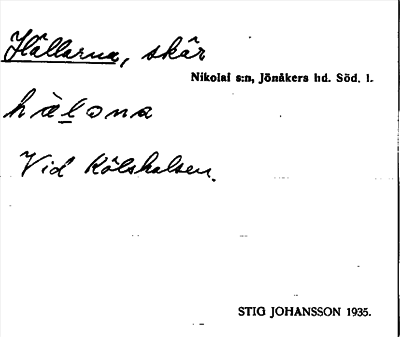 Hällarna, skär
Nikolai s:n, Jönåkers hd. Söd. l.
hälona
Vid Kölshalsen.
STIG JOHANSSON 1935.